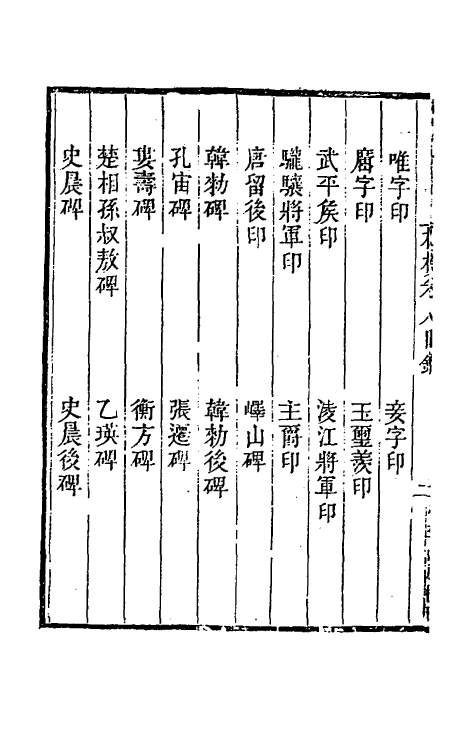 札樸卷八目錄 二
唯字印 妾字印
廥字印 玉璽羨印
武平矦印 淩江將軍印
驤將軍印 主爵印
唐留後印 嶧山碑
韓勑碑 韓勑後碑
孔宙碑 張遷碑
婁壽碑 衡方碑
楚相孫叔敖碑 乙瑛碑
史晨碑 史晨後碑